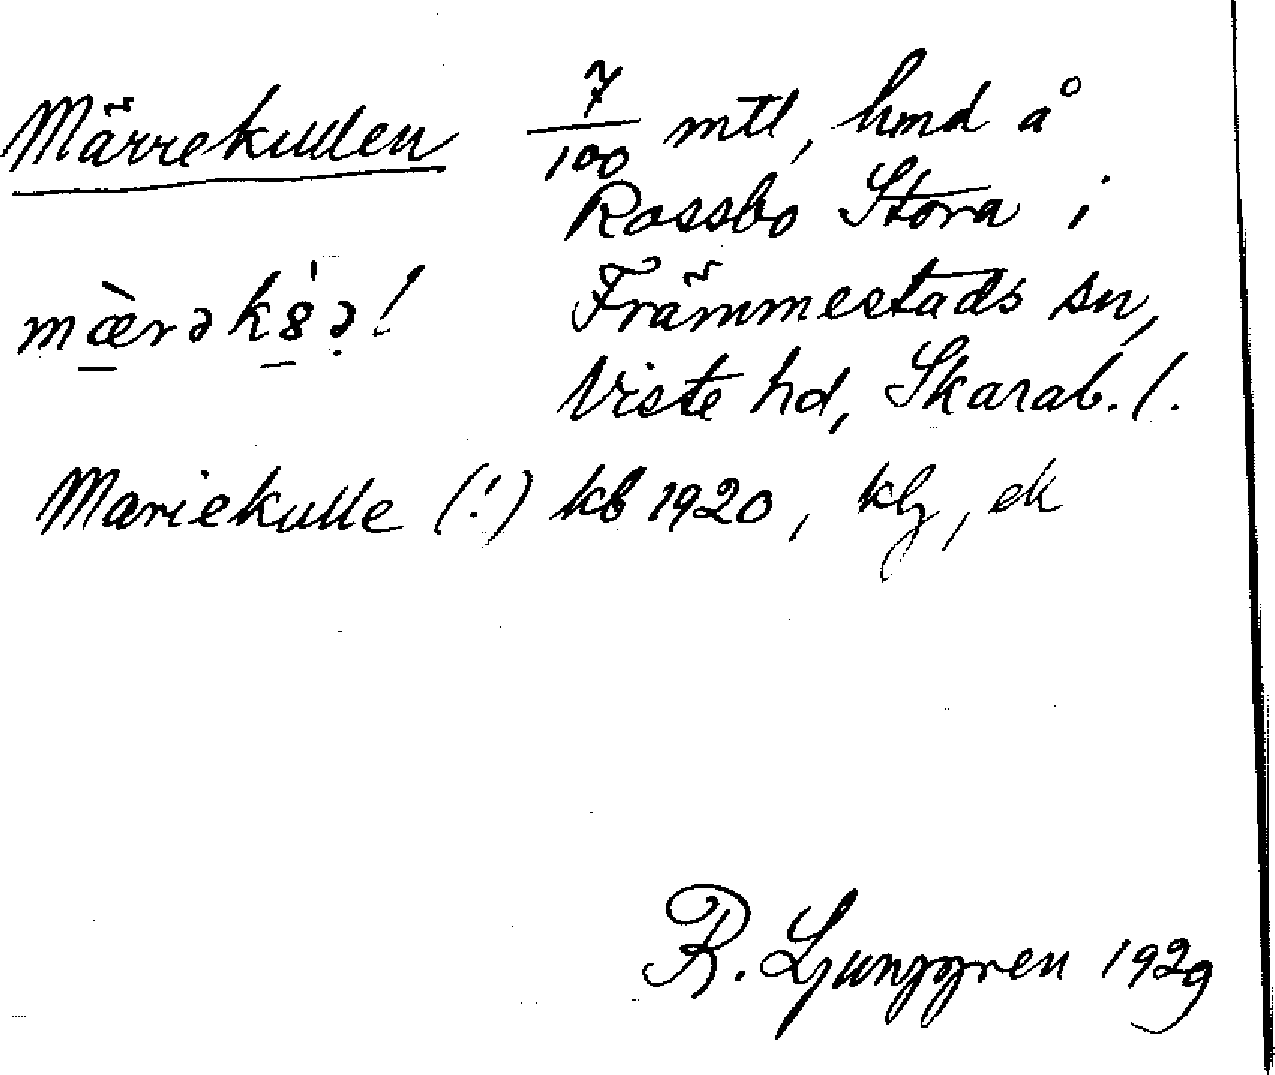 Märrekullen 7/100 mtl, hmd å
Rossbo Stora i
mæ̀rəks̀ə! Främmestads sn,
Viste hd, Skarab. l.
Mariekulle (!) kb 1920, klg, ek
R. Ljunggren 1929